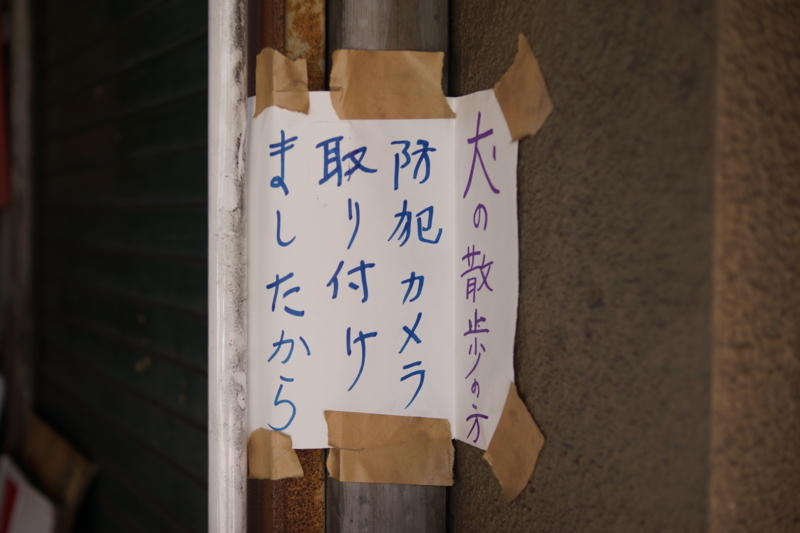 犬の散歩の方
防犯カメラ
取り付け
ましたから